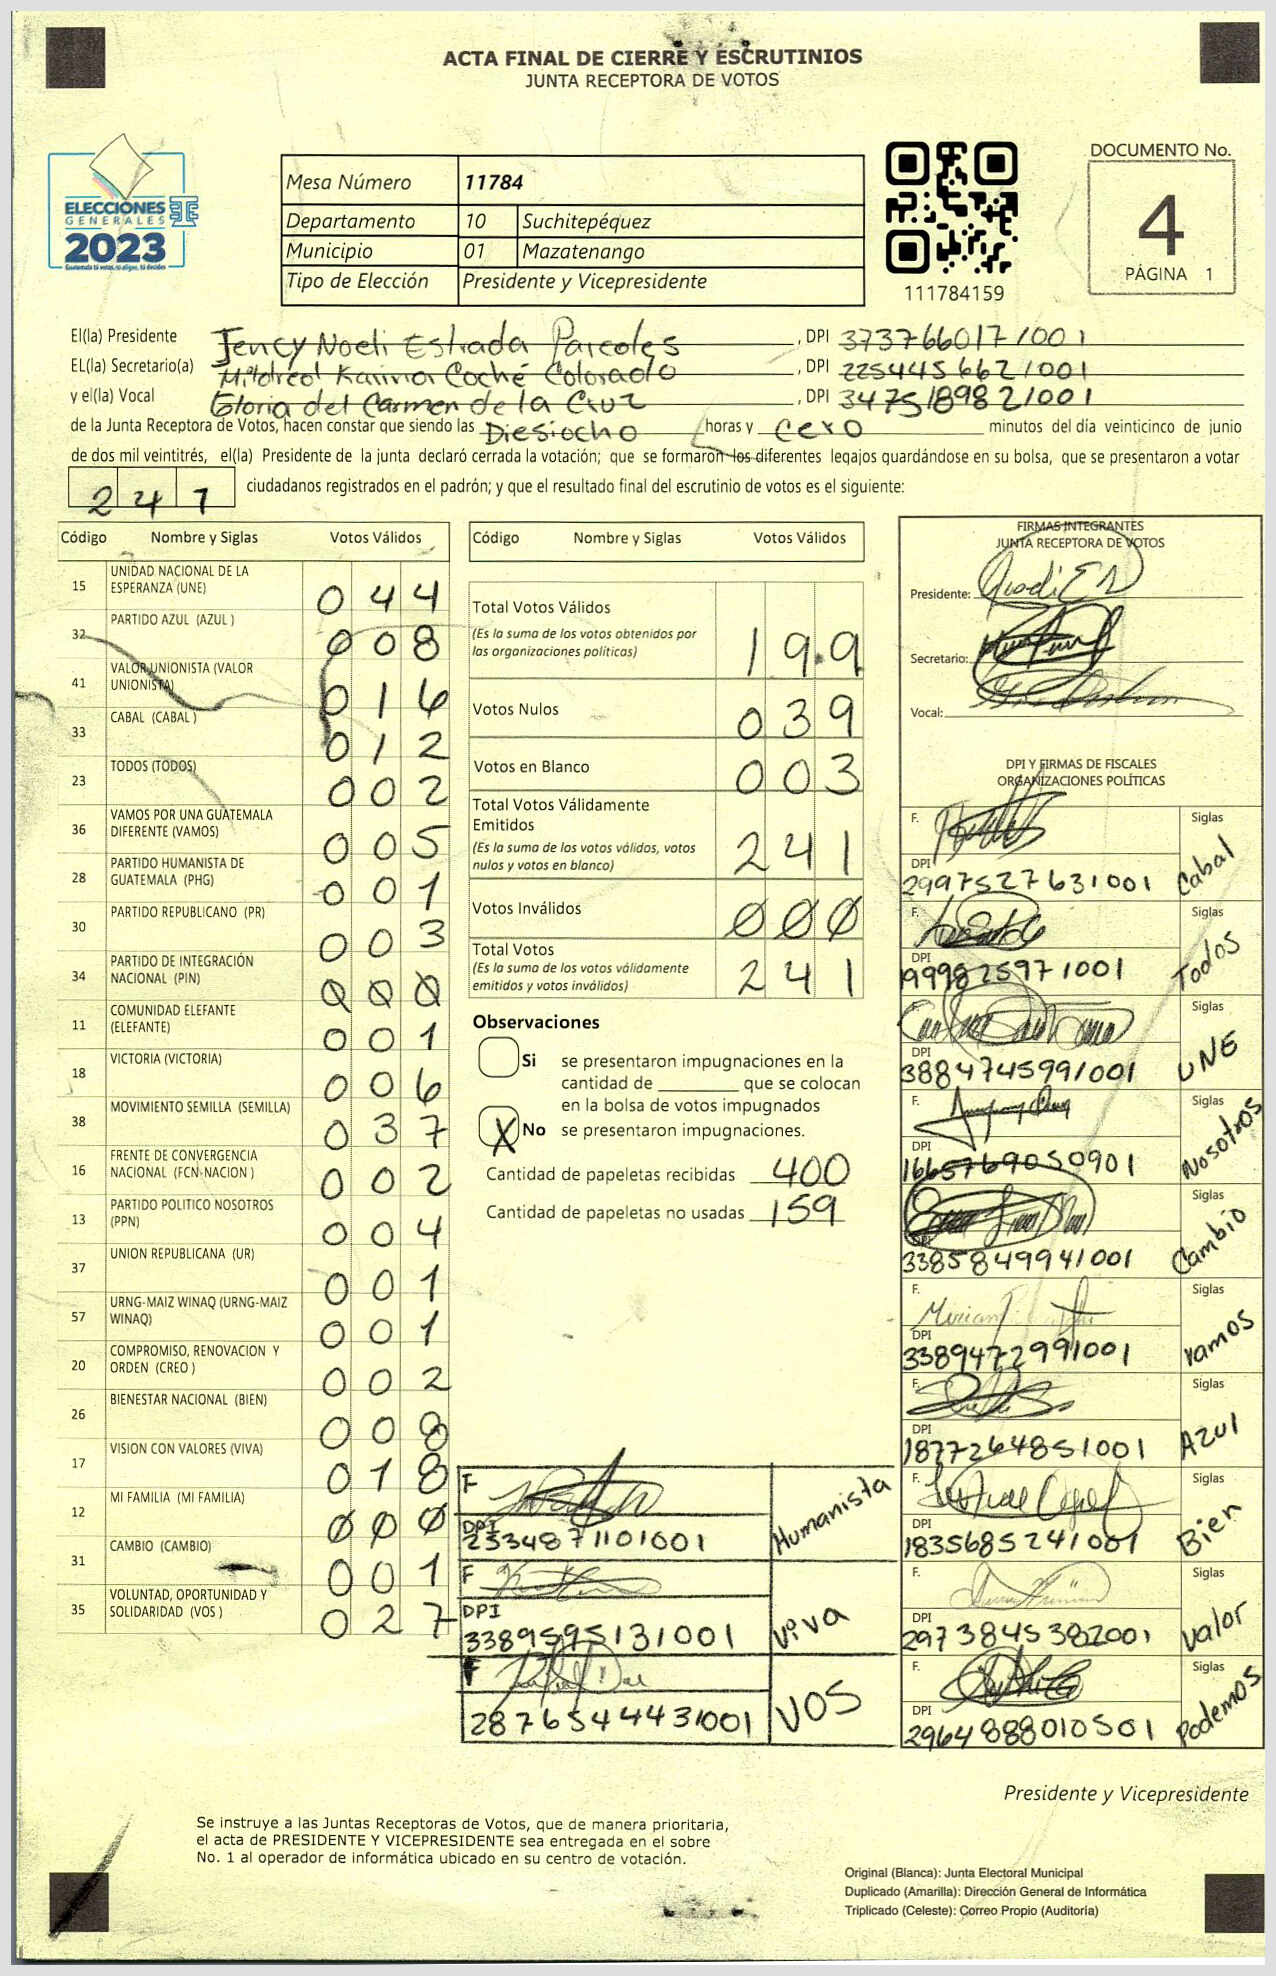 ACTA FINAL DE CIERRE Y ESCRUTINIOS
JUNTA RECEPTORA DE VOTOS
ELECCIONES
GENERALES
2023
Guatemala tú votas, tú eliges, tú decides
Mesa Número 11784
Departamento 10 Suchitepéquez
Municipio 01 Mazatenango
Tipo de Elección Presidente y Vicepresidente
111784159
DOCUMENTO No.
4
PÁGINA 1
El(la) Presidente Jency Noeli Estrada Paredes, DPI 3737660171001
EL(la) Secretario(a) Mildred Karina Coché Colorado, DPI 2254456621001
y el(la) Vocal Gloria del Carmen de la Cruz, DPI 3475189821001
de la Junta Receptora de Votos, hacen constar que siendo las Diesiocho horas y cero minutos del día veinticinco de junio
de dos mil veintitrés, el(la) Presidente de la junta declaró cerrada la votación; que se formaron los diferentes legajos guardándose en su bolsa, que se presentaron a votar
241 ciudadanos registrados en el padrón; y que el resultado final del escrutinio de votos es el siguiente:
Código Nombre y Siglas Votos Válidos
15 UNIDAD NACIONAL DE LA ESPERANZA (UNE) 044
32 PARTIDO AZUL (AZUL ) 008
41 VALOR UNIONISTA (VALOR UNIONISTA) 016
33 CABAL (CABAL ) 012
23 TODOS (TODOS) 002
36 VAMOS POR UNA GUATEMALA DIFERENTE (VAMOS) 005
28 PARTIDO HUMANISTA DE GUATEMALA (PHG) 001
30 PARTIDO REPUBLICANO (PR) 003
34 PARTIDO DE INTEGRACIÓN NACIONAL (PIN) 000
11 COMUNIDAD ELEFANTE (ELEFANTE) 001
18 VICTORIA (VICTORIA) 006
38 MOVIMIENTO SEMILLA (SEMILLA) 037
16 FRENTE DE CONVERGENCIA NACIONAL (FCN-NACION ) 002
13 PARTIDO POLITICO NOSOTROS (PPN) 004
37 UNION REPUBLICANA (UR) 001
57 URNG-MAIZ WINAQ (URNG-MAIZ WINAQ) 001
20 COMPROMISO, RENOVACION Y ORDEN (CREO ) 002
26 BIENESTAR NACIONAL (BIEN) 008
17 VISION CON VALORES (VIVA) 018
12 MI FAMILIA (MI FAMILIA) 000
31 CAMBIO (CAMBIO) 001
35 VOLUNTAD, OPORTUNIDAD Y SOLIDARIDAD (VOS ) 027
Código Nombre y Siglas Votos Válidos
Total Votos Válidos 199
(Es la suma de los votos obtenidos por
las organizaciones políticas)
Votos Nulos 039
Votos en Blanco 003
Total Votos Válidamente
Emitidos 241
(Es la suma de los votos válidos, votos
nulos y votos en blanco)
Votos Inválidos 000
Total Votos 241
(Es la suma de los votos válidamente
emitidos y votos inválidos)
Observaciones
Si se presentaron impugnaciones en la
cantidad de ________ que se colocan
en la bolsa de votos impugnados
X No se presentaron impugnaciones.
Cantidad de papeletas recibidas 400
Cantidad de papeletas no usadas 159
F
DPI
2334871101001 Humanista
F
DPI
3389595131001 Viva
F
2876544431001 VOS
FIRMAS INTEGRANTES
JUNTA RECEPTORA DE VOTOS
Presidente:
Secretario:
Vocal:
DPI Y FIRMAS DE FISCALES
ORGANIZACIONES POLÍTICAS
F. Siglas
DPI
2997527631001 Cabal
F. Siglas
DPI
1999825971001 Todos
F. Siglas
DPI
3884745991001 UNE
F. Siglas
DPI
1665769050901 Nosotros
F. Siglas
DPI
3385849941001 Cambio
F. Miriam Siglas
DPI
3389472991001 vamos
F. Siglas
DPI
1877264851001 Azul
F. Siglas
DPI
1835685241001 Bien
F. Siglas
DPI
2973845382001 valor
F. Siglas
DPI
2964888010501 Podemos
Presidente y Vicepresidente
Se instruye a las Juntas Receptoras de Votos, que de manera prioritaria,
el acta de PRESIDENTE Y VICEPRESIDENTE sea entregada en el sobre
No. 1 al operador de informática ubicado en su centro de votación.
Original (Blanca): Junta Electoral Municipal
Duplicado (Amarilla): Dirección General de Informática
Triplicado (Celeste): Correo Propio (Auditoría)